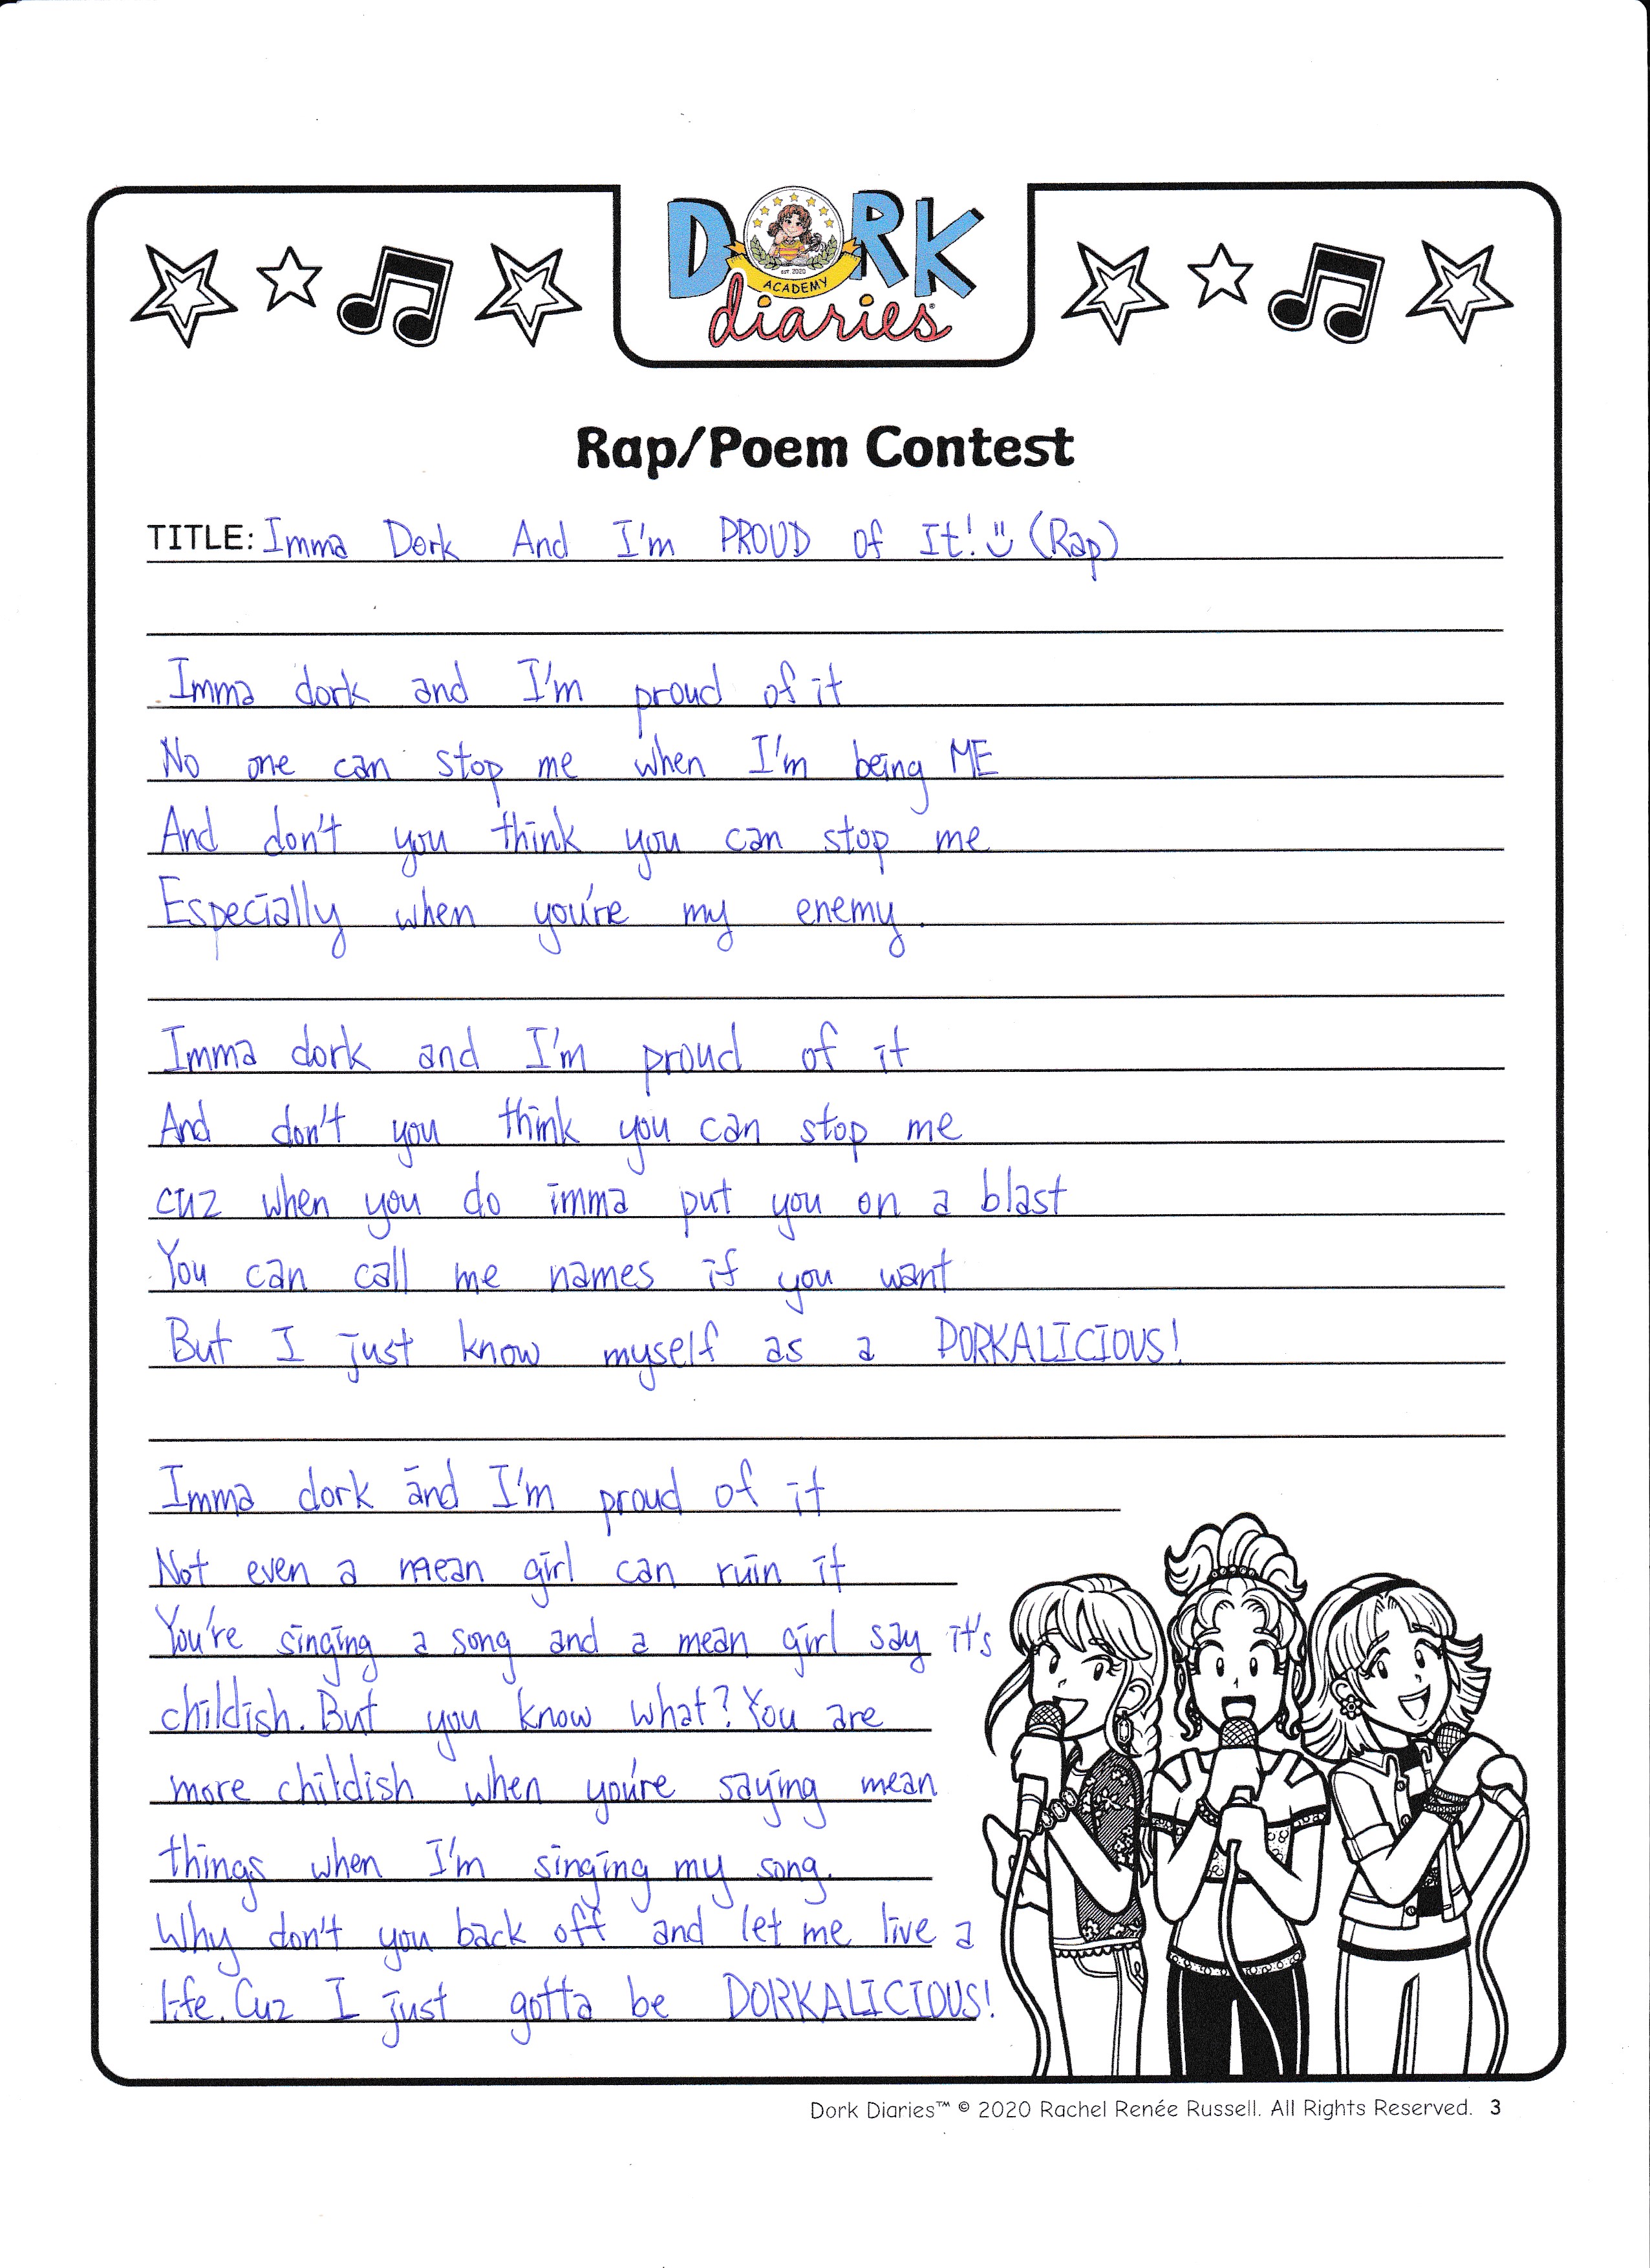 DORK
EST. 2020
ACADEMY
diaries
Rap/Poem Contest
TITLE: Imma Dork And I'm PROUD of It! (Rap)
Imma dork and I'm proud of it
No one can stop me when I'm being ME
And don't you think you can stop me
Especially when you're my enemy.
Imma dork and I'm proud of it
And don't you think you can stop me
cuz when you do imma put you on a blast
You can call me names if you want
But I just know myself as a DORKALICIOUS!
Imma dork and I'm proud of it
Not even a mean girl can ruin it
You're singing a song and a mean girl say it's
childish. But you know what? You are
more childish when you're saying mean
things when I'm singing my song.
Why don't you back off and let me live a
life. Cuz I just gotta be DORKALICIOUS!
Dork Diaries™ © 2020 Rachel Renée Russell. All Rights Reserved. 3